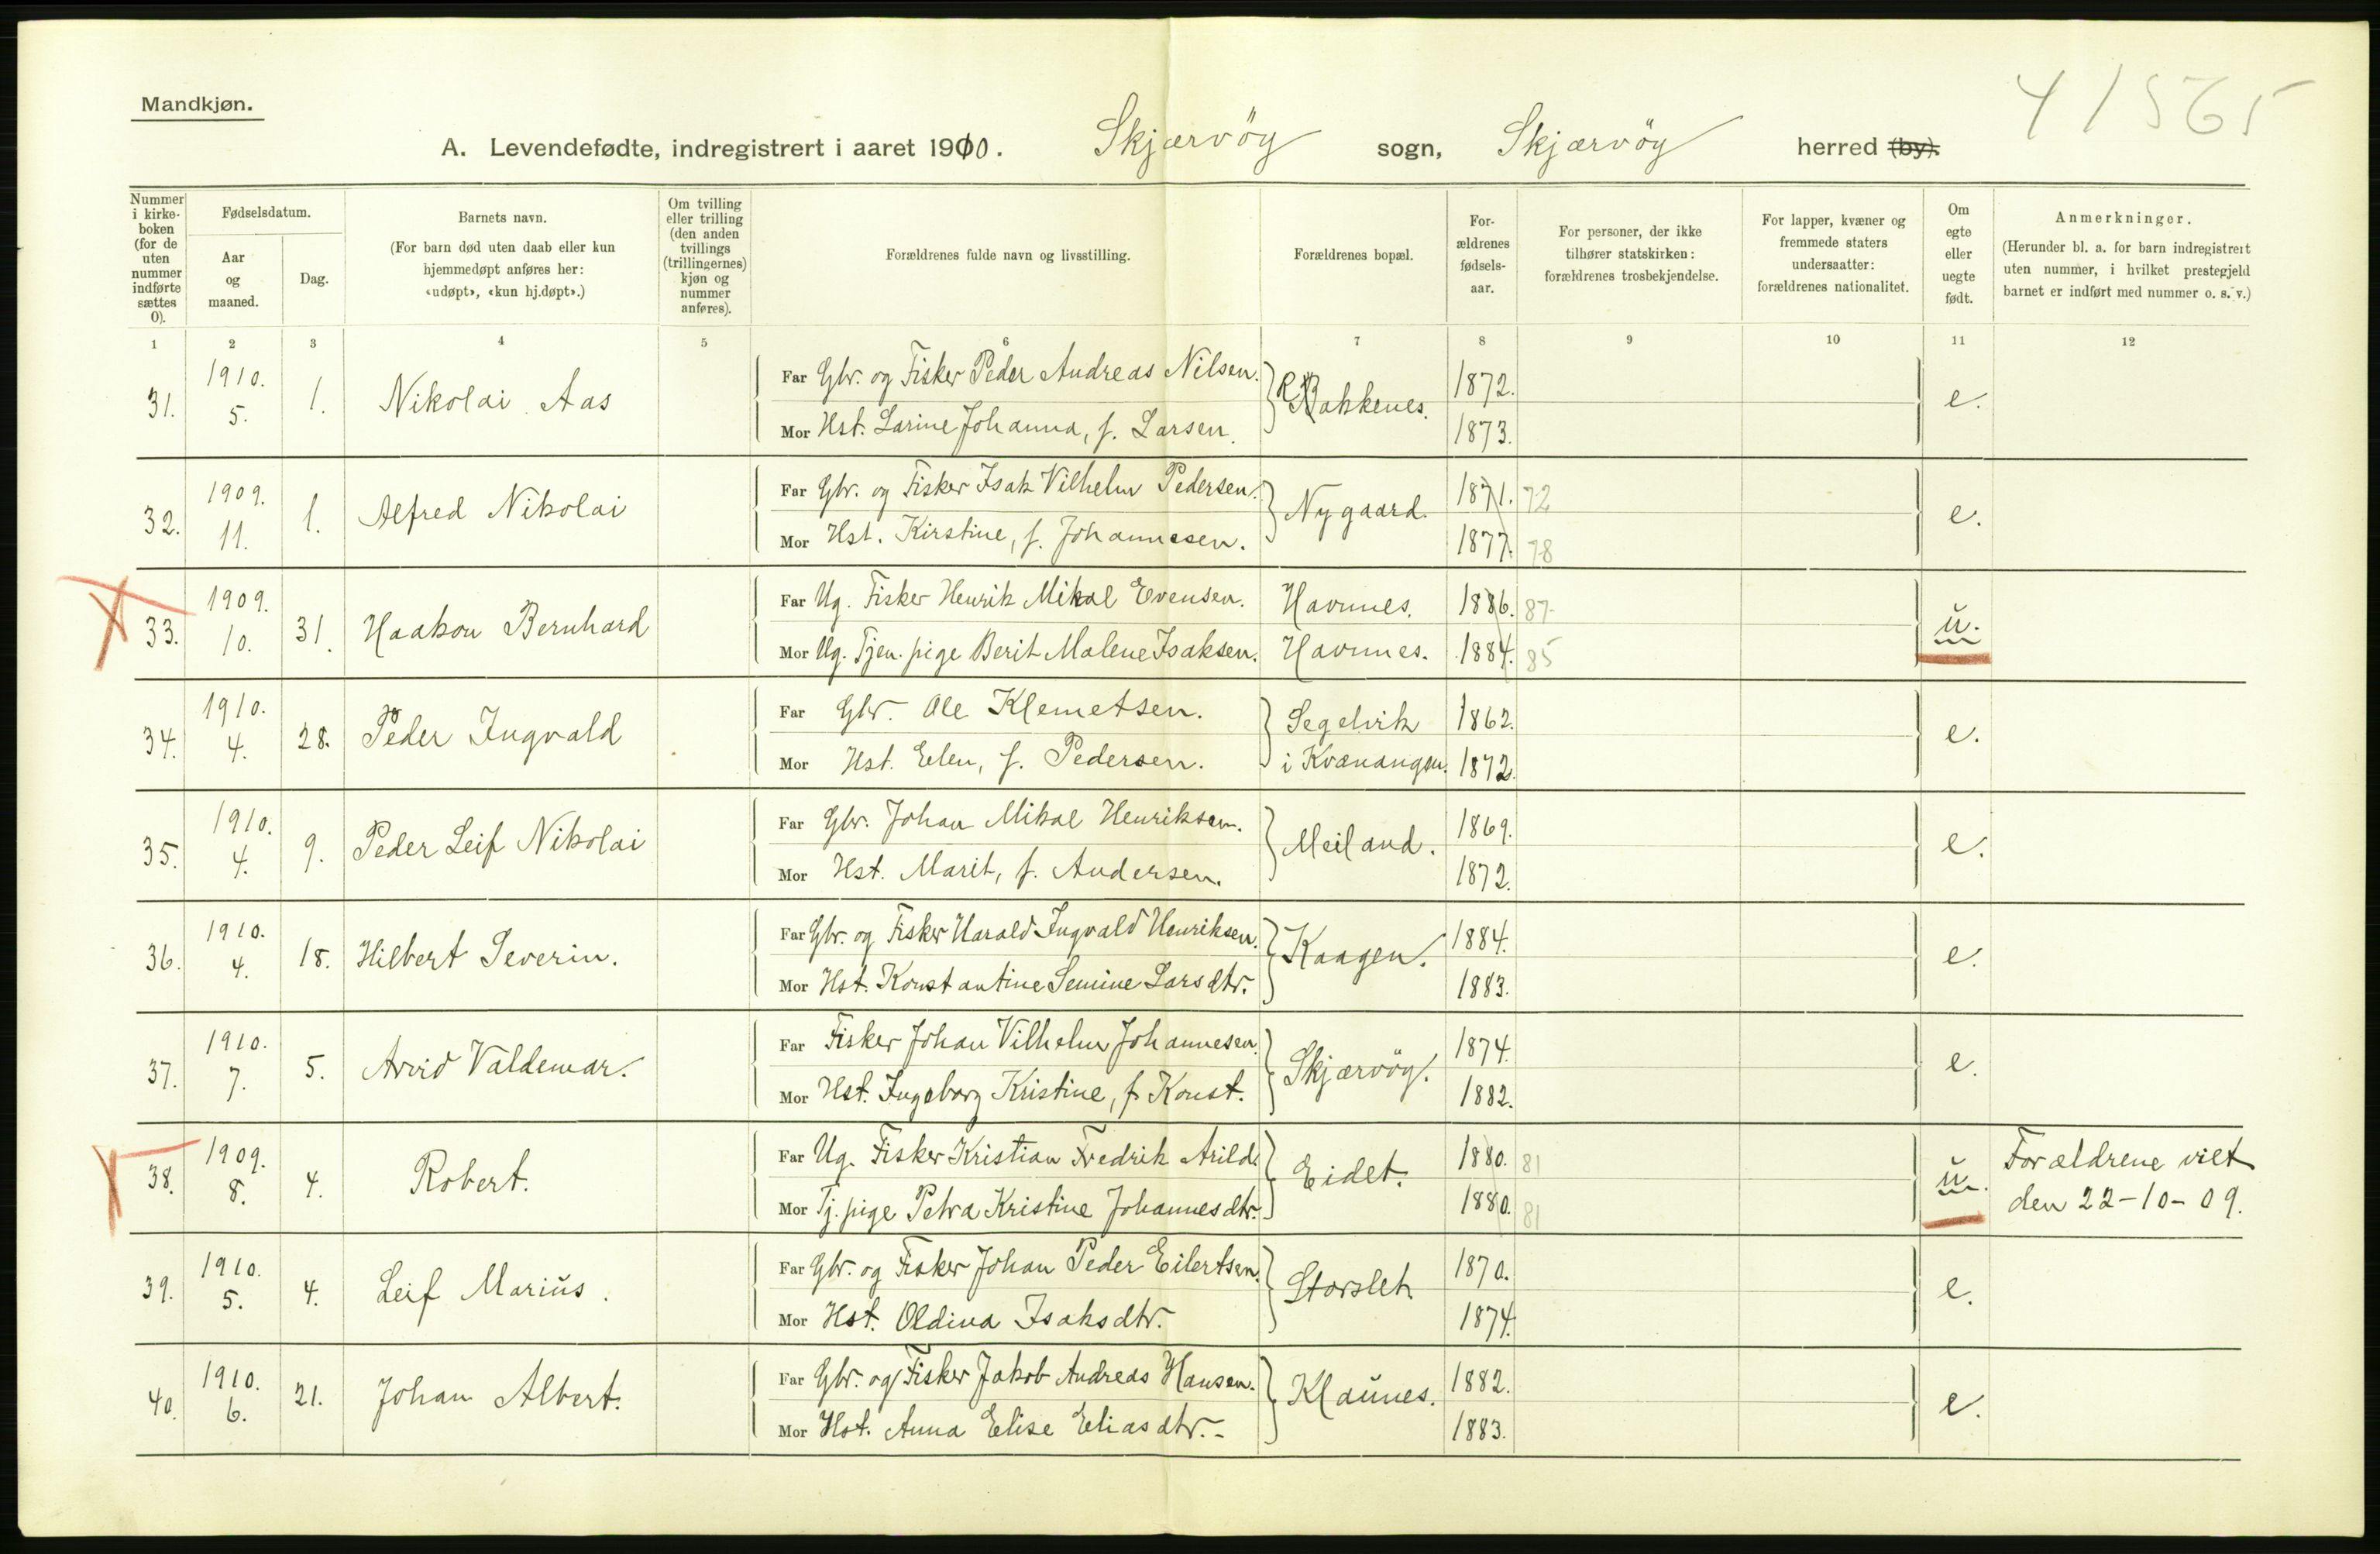 41565
Mandkjøn.
A. Levendefødte, indregistrert i aaret 1910. Skjærvöy sogn, Skjærvöy herred (by).
Nummer i kirke-boken (for de uten nummer indførte sættes 0).
Fødselsdatum.
Aar og maaned.
Dag.
Barnets navn.
(For barn død uten daab eller kun hjemmedøpt anføres her: «udøpt», «kun hj.døpt».)
Om tvilling eller trilling (den anden tvillings (trillingernes) kjøn og nummer anføres).
Forældrenes fulde navn og livsstilling.
Forældrenes bopæl.
For-ældrenes fødsels-aar.
For personer, der ikke tilhører statskirken: forældrenes trosbekjendelse.
For lapper, kvæner og fremmede staters undersaatter: forældrenes nationalitet.
Om egte eller uegte født.
Anmerkninger.
(Herunder bl. a. for barn indregistrert uten nummer, i hvilket prestegjeld barnet er indført med nummer o. s. v.)
1 2 3 4 5 6 7 8 9 10 11 12
31. 1910. 5. 1. Nikolai Aas
Far Gbr. og Fisker Peder Andreas Nilsen. Rakkenes. 1872. e.
Mor Hst. Larine Johanna, f. Larsen. 1873.
32. 1909. 11. 1. Alfred Nikolai
Far Gbr. og Fisker Isak Vilhelm Pedersen. Nygaard. 1871. 72 e.
Mor Hst. Kirstine, f. Johannesen. 1877. 78
33. 1909. 10. 31. Haakon Bernhard
Far Ug. Fisker Henrik Mikal Evensen. Havnnes. 1886. 87 u.
Mor Ug. Tjen. pige Berit Malene Isaksen. Havnnes. 1884. 85
34. 1910. 4. 28. Peder Ingvald
Far Gbr. Ole Klemetsen. Segelvik 1862. e.
Mor Hst. Elen, f. Pedersen. i Kvænangen. 1872.
35. 1910. 4. 9. Peder Leif Nikolai
Far Gbr. Johan Mikal Henriksen. Meiland. 1869. e.
Mor Hst. Marit, f. Andersen. 1872.
36. 1910. 4. 18. Hilbert Severin.
Far Gbr. og Fisker Harald Ingvald Henriksen. Kaagen. 1884. e.
Mor Hst. Konstantine Semine Larsdtr. 1883.
37. 1910. 7. 5. Arvid Valdemar.
Far Fisker Johan Vilhelm Johannesen. Skjærvöy. 1874. e.
Mor Hst. Ingeborg Kristine, f. Konst. 1882.
38. 1909. 8. 4. Robert.
Far Ug. Fisker Kristian Fredrik Arild. Eidet. 1880. 81 u. Forældrene viet
Mor Tj. pige Petra Kristine Johannesdtr. 1880. 81 den 22-10-09.
39. 1910. 5. 4. Leif Marius.
Far Gbr. og Fisker Johan Peder Eilertsen. Storslet. 1870. e.
Mor Hst. Oldina Isaksdtr. 1874.
40. 1910. 6. 21. Johan Albert.
Far Gbr. og Fisker Jakob Andreas Hansen. Klaunes. 1882. e.
Mor Hst. Anna Elise Eliasdtr.- 1883.